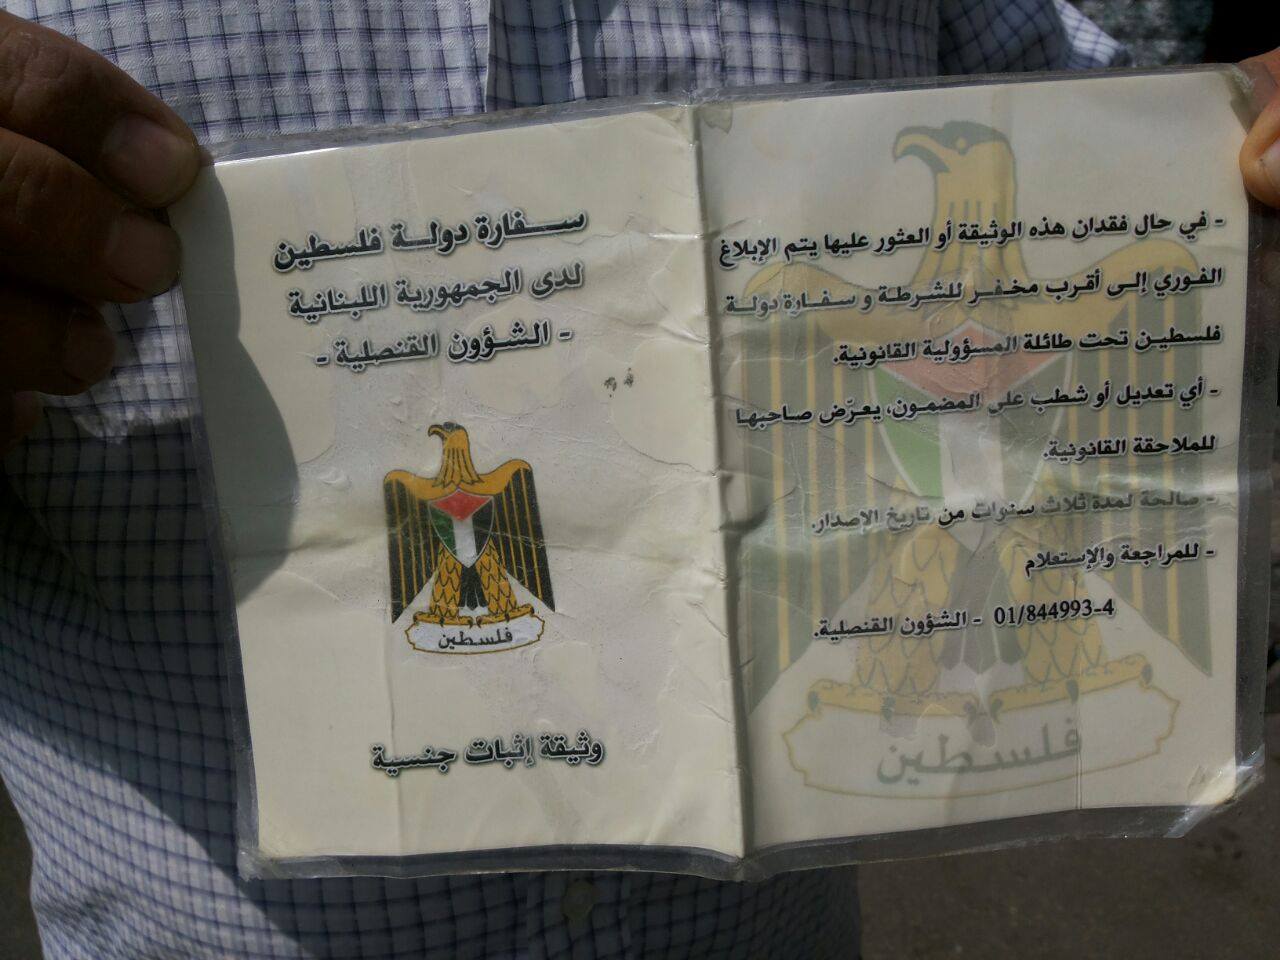 سفارة دولة فلسطين
لدى الجمهورية اللبنانية
- الشؤون القنصلية -
فلسطين
وثيقة إثبات جنسية
- في حال فقدان هذه الوثيقة أو العثور عليها يتم الإبلاغ
الفوري إلى أقرب مخفر للشرطة و سفارة دولة
فلسطين تحت طائلة المسؤولية القانونية.
- أي تعديل أو شطب على المضمون، يعرّض صاحبها
للملاحقة القانونية.
- صالحة لمدة ثلاث سنوات من تاريخ الإصدار.
- للمراجعة والإستعلام
01/844993-4 - الشؤون القنصلية.
فلسطين